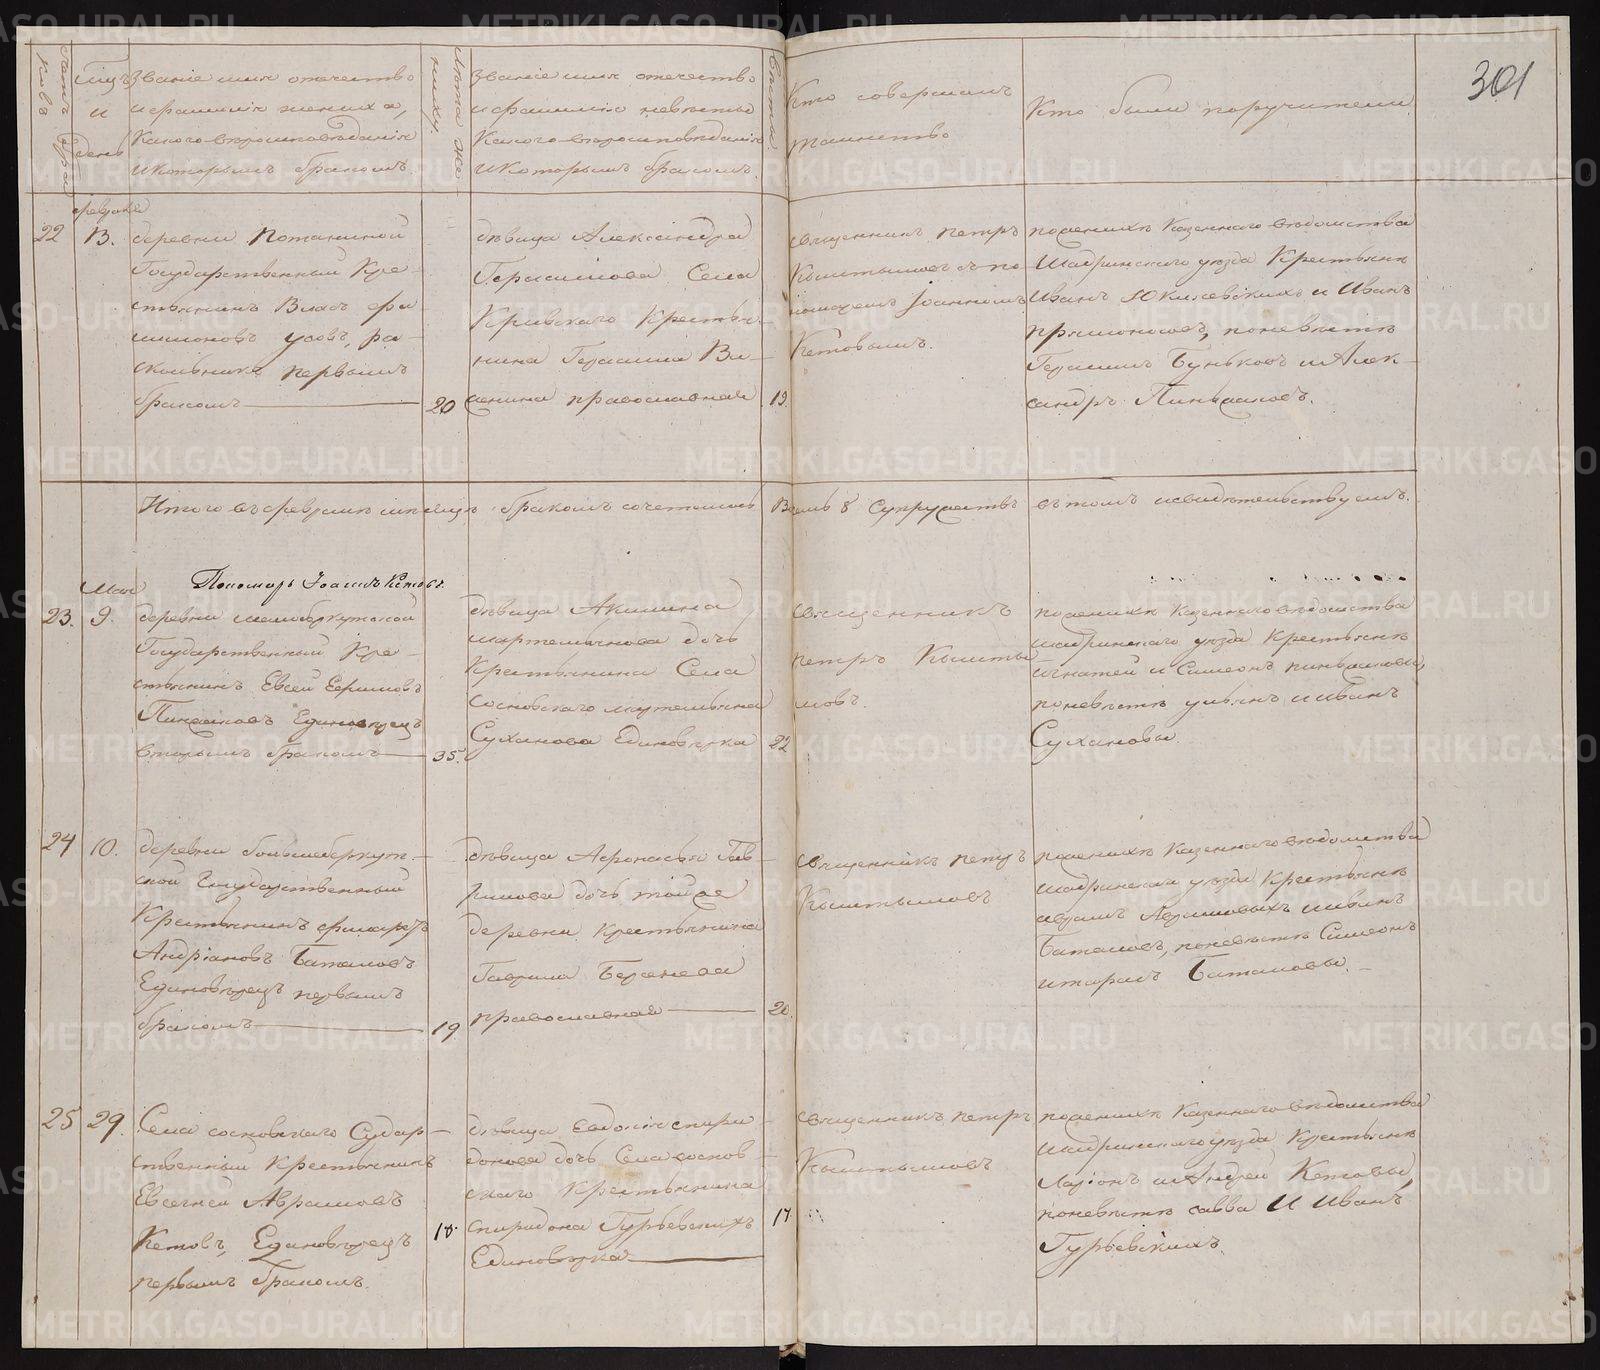 301
Счетъ браковъ
Мцъ и день
Званіе имя отечество
и фамилія жениха,
Какого вѣроисповѣданія
и которымъ бракомъ.
Лѣта жениху.
Званіе имя отечество
и фамилія невѣсты
Какого вѣроисповѣданія
и которымъ бракомъ.
Кто совершалъ
таинство
Кто были поручители
февраля
22
8.
деревни Потаниной
Государственный Кре-
стьянинъ Власъ Фи
лимоновъ
первымъ
бракомъ
20
дѣвица Александра
Герасимова Села
Кривскаго Крестья-
нина Герасима
православная
19.
священникъ петръ
Кыштымовъ съ по
номаремъ Іоанномъ
Кетовымъ.
по женихѣ Казеннаго вѣдомства
Шадринскаго уѣзда Крестьяне
Иванъ Юкляевскихъ и Иванъ
по невѣстѣ
Герасимъ Буньковъ и Алек-
сандръ Пиньжаковъ.
Итого въ февралѣ мѣсяцѣ бракомъ сочетались Восемь 8 Супружествъ въ томъ и свидѣтельствуемъ.
Пономарь Іоаннъ Кетовъ.
Мая
23.
9.
деревни малоберкутской
Государственный Кре-
стьянинъ Евсей Ефимовъ
Пинжаковъ Единовѣрецъ
вторымъ бракомъ
35.
дѣвица Акилина
мартемьянова дочь
Крестьянина Села
Сосновскаго мартемьяна
Суханова Единовѣрка
22
священникъ
петръ Кышты
мовъ.
по женихѣ Казеннаго вѣдомства
шадринскаго уѣзда Крестьяне
Игнатей и Симеонъ пиньжаковы,
по невѣстѣ ульянъ и иванъ
Сухановы
24
10.
деревни большеберкут-
ской Государственный
Крестьянинъ
Андріановъ Баталовъ
Единовѣрецъ первымъ
бракомъ
19
дѣвица Афонасья Гав-
рилова дочь той же
деревни Крестьянина
Гаврила
православная
20.
священникъ петръ
Кыштымовъ
по женихѣ Казеннаго вѣдомства
шадринскаго уѣзда Крестьяне
и иванъ
Баталовъ, по невѣстѣ Симеонъ
Баталовы.
25
29.
Села сосновскаго Судар-
ственный Крестьянинъ
Евсегней Аврамовъ
Кетовъ, Единовѣрецъ
первымъ бракомъ.
18.
дѣвица Евдокія спири-
донова дочь Села соснов-
скаго Крестьянина
спиридона Гурьевскихъ
Единовѣрка
17.
священникъ петръ
Кыштымовъ
по женихѣ Казеннаго вѣдомства
шадринскаго уѣзда Крестьяне
Ларіонъ и Андрей Кетовы,
по невѣстѣ савва И Иванъ
Гурьевскихъ.
METRIKI.GASO-URAL.RU